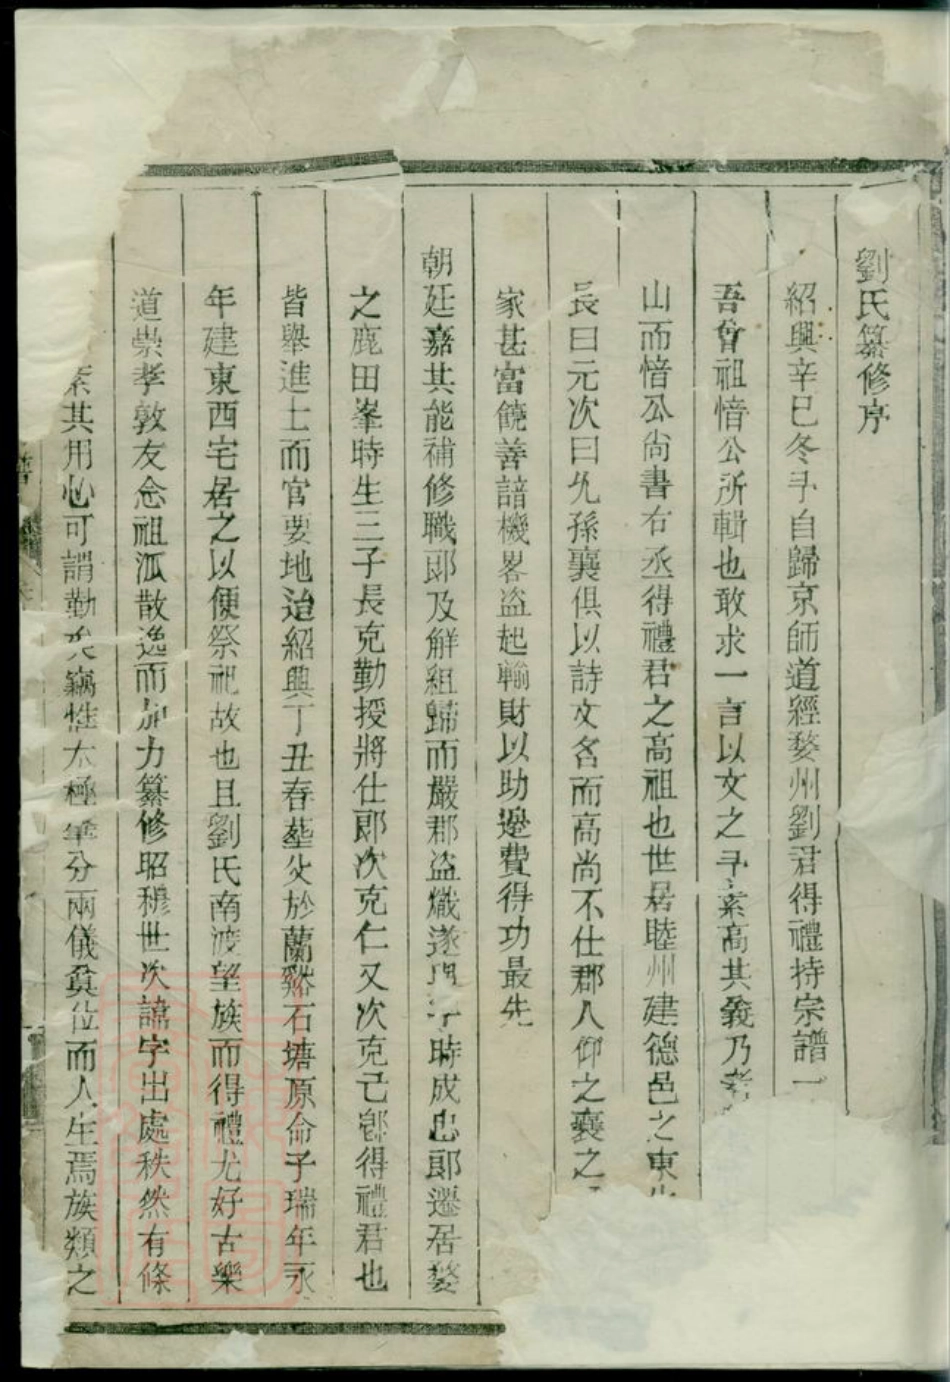 劉氏纂修序
紹興辛巳冬予自歸京師道經婺州劉君得禮持宗譜一
吾曾祖愔公所輯也敢求一言以文之予素高其義乃考
山而愔公尚書右丞得禮君之高祖也世居睦州建德邑之東
長曰元次曰允孫襄俱以詩文名而高尚不仕郡人仰之襄之
家甚富饒善諳機畧盗起輸財以助邊費得功最先
朝廷嘉其能補修職郎及觧組歸而嚴郡盗熾遂 時成忠郎遷居婺
之鹿田峯時生三子長克勤授將仕郎次克仁又次克己卽得禮君也
皆舉進士而官要地迨紹興丁丑春塟父於蘭谿石塘原命子瑞年永
年建東西宅居之以便祭祀故也且劉氏南渡望族而得禮尤好古樂
道崇孝敦友念祖派散逸而加力纂修昭穆世次諱字出處秩然有條
紊其用心可謂勤矣竊惟太極肇分兩儀奠位而人生焉族類之
譜